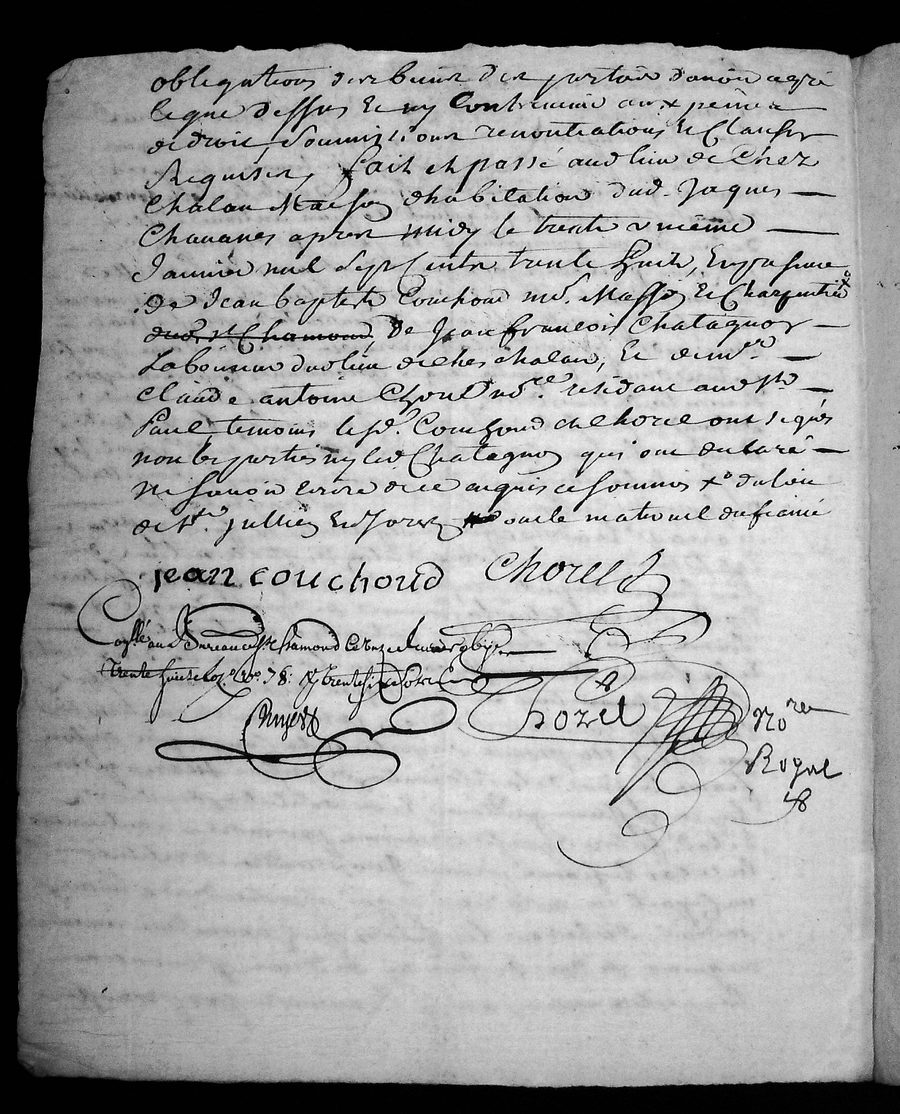 obligations des biens des parties d'avoir agré
ce que dessus et ny contrevenir aux peines
de droit soumissions renontiations et clauses
Requises, fait et passé aud lieu de Chez
Chalan Maison d'habitation dud. Jaques
Chavanes apres midy le trente unième
Janvier mil sept cents trente huit, En presence
de Jean baptiste Couchoud mr. Masson et Charpentier x
dud st Chamond, de Jean francois Chatagnon
Laboureur dud lieu de ches chalan, et de mr.
Claude antoine Chorel nore. residant aud st
Paul temoins led. Couchoud et Chorel ont signés
non les parties ny led Chatagnon qui ont declaré
ne savoir ecrire de ce enquis et sommés x du lieu
de st. jullien en Jarez
jean couchoud Chorel
Conllé au Bureau de st Chamond Ce onze
trente huit
Chorel
No.re
Royal